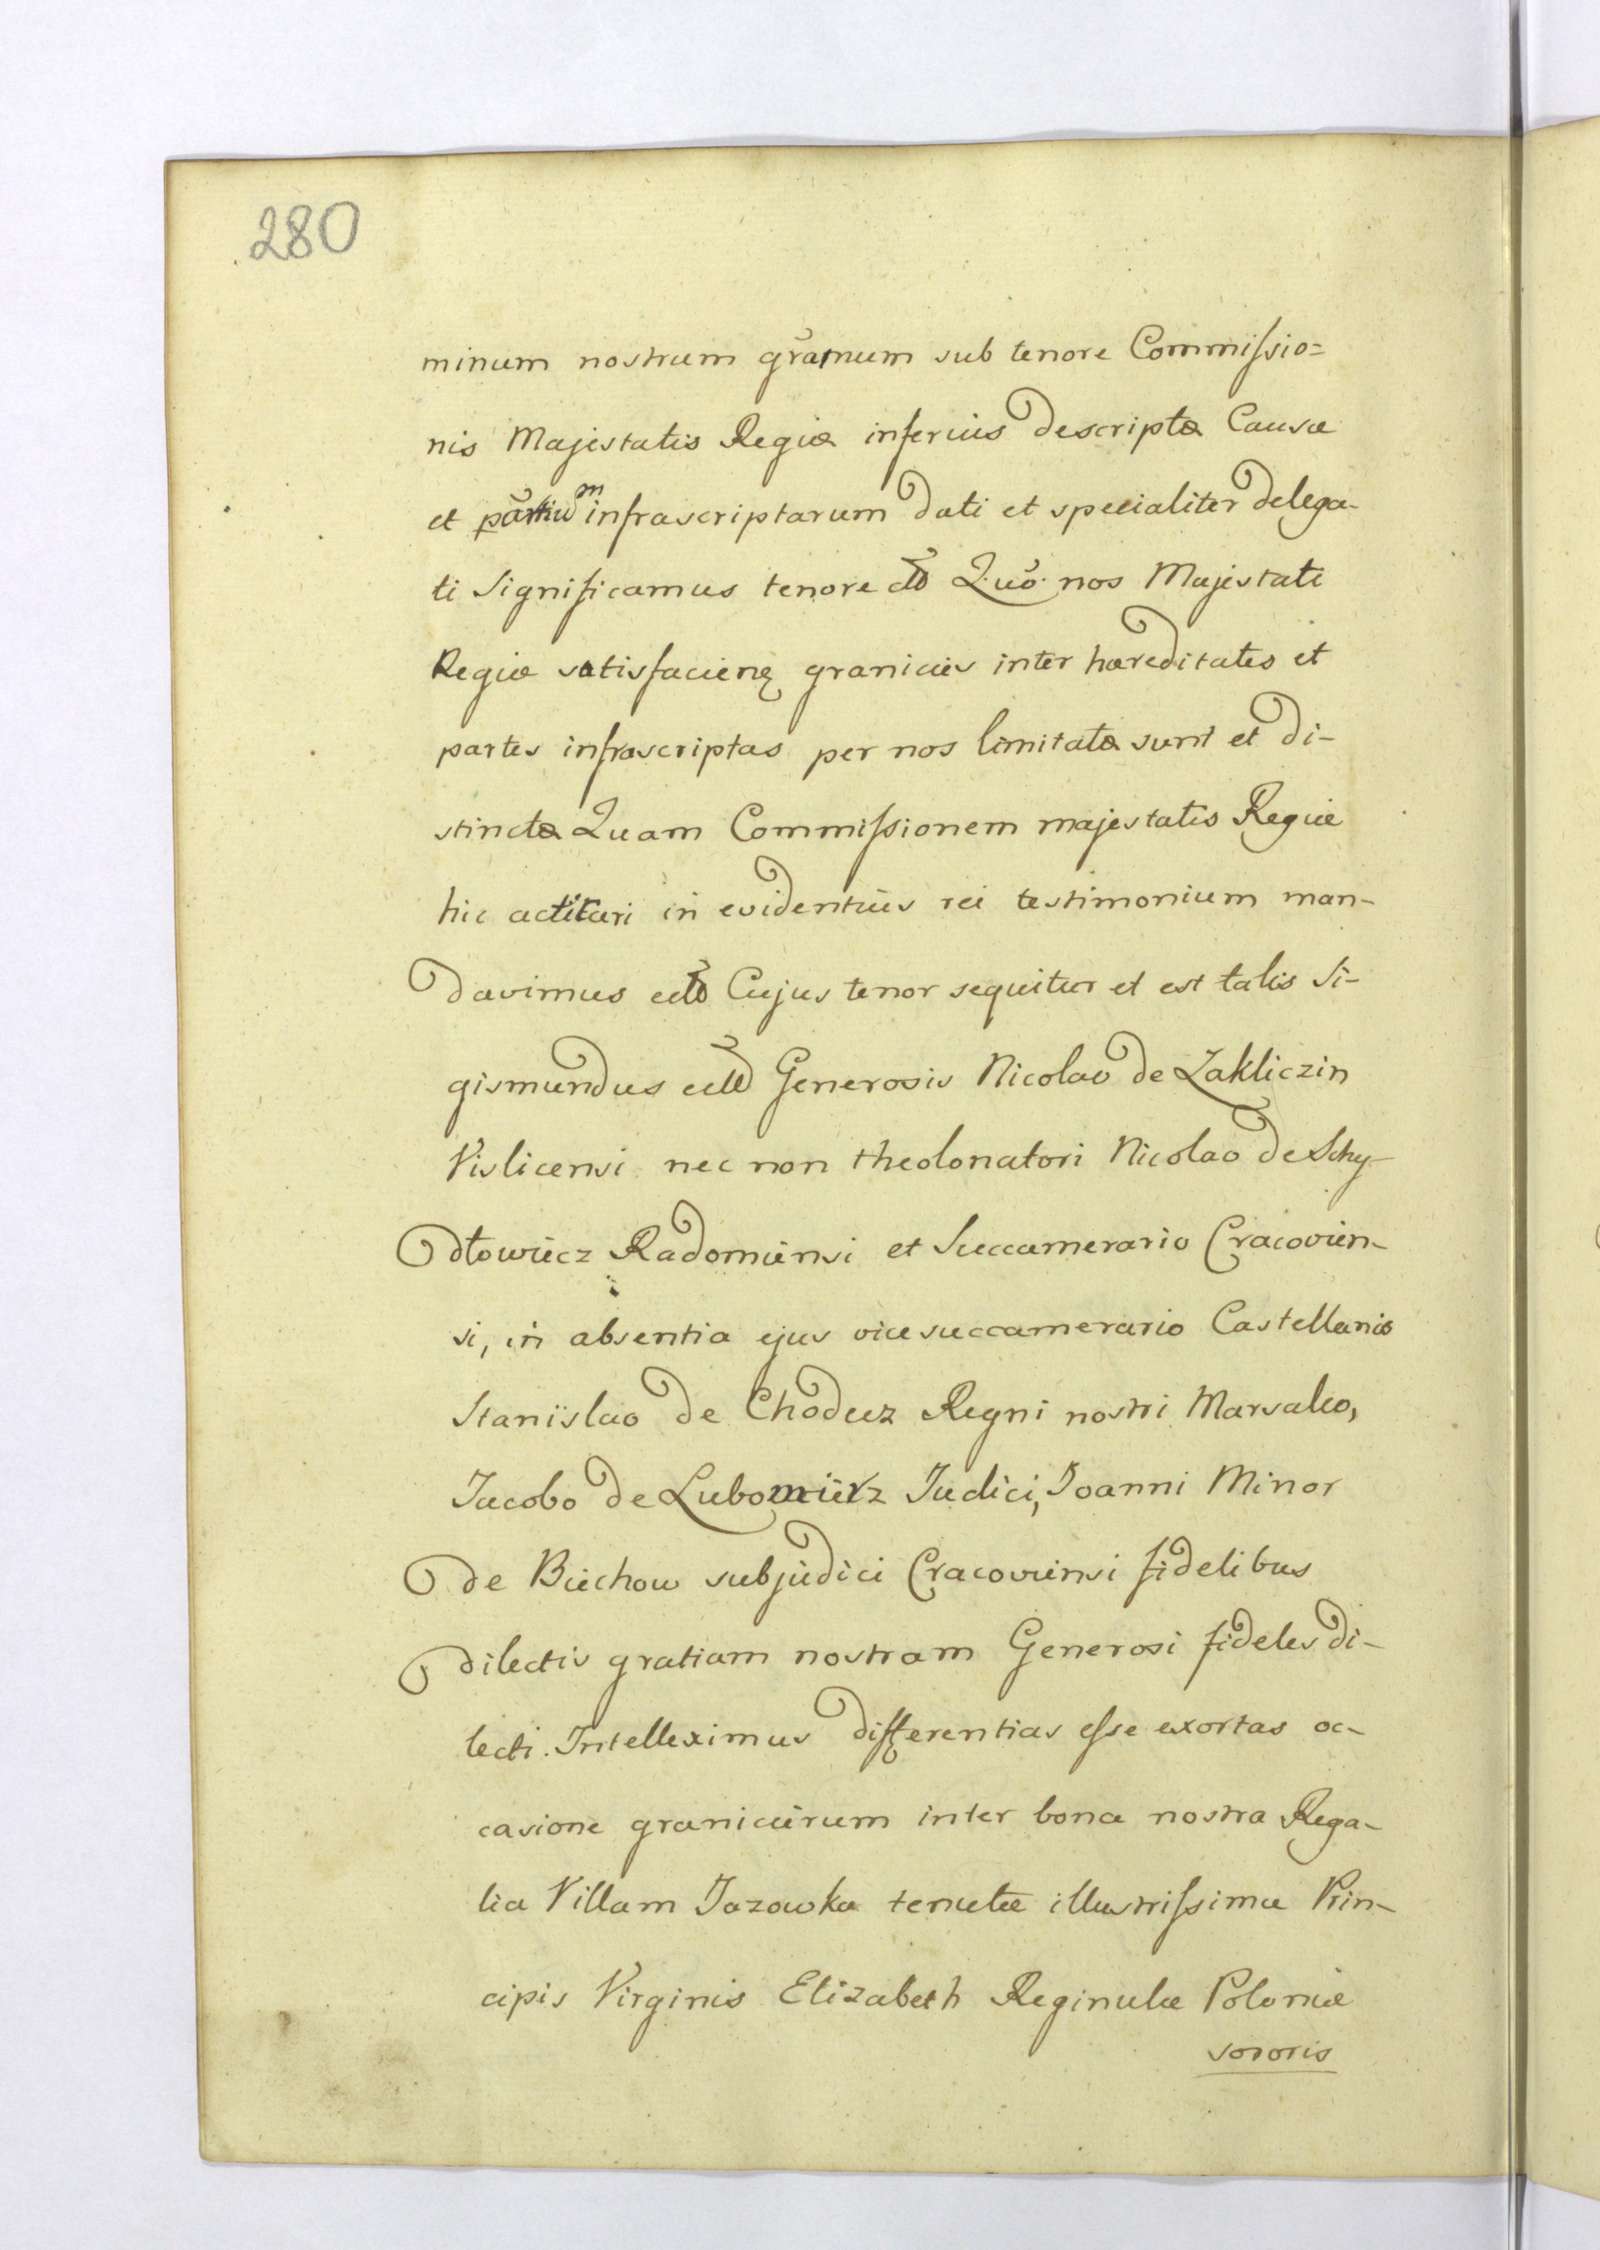 280
minum nostrum gra͠mum sub tenore Commiſsio=
nis Majestatis Regiæ inferius descriptæ Causæ
et partiũm infrascriptarum dati et specialiter delega-
ti Significamus tenore Quõ nos Majestati
Regiæ satisfacienę granicies inter hæreditates et
partes infrascriptas per nos limitatæ sunt et di-
stinctæ Quam Commiſsionem majestatis Regiæ
hic actitari in evidentius rei testimonium man-
davimus Cujus tenor sequitur et est talis Si-
gismundus Generosis Nicolao de Zakliczin
Vislicensi nec non theolonatori Nicolao de Schy-
dłowiecz Radomiensi et Succamerario Cracovien-
si, in absentia ejus vicesuccamerario Castellanis
Stanislao de Chodecz Regni nostri Marsalco,
Jacobo de Lubomierz Judici, Joanni Minor
de Biechow subjudici Cracoviensi fidelibus
dilectis gratiam nostram Generosi fideles di-
lecti. Intelleximus differentias eſse exortas oc-
casione granicierum inter bona nostra Rega-
lia Villam Jazowka tenutæ illustriſsimæ Prin-
cipis Virginis Elizabeth Reginulæ Poloniæ
sororis